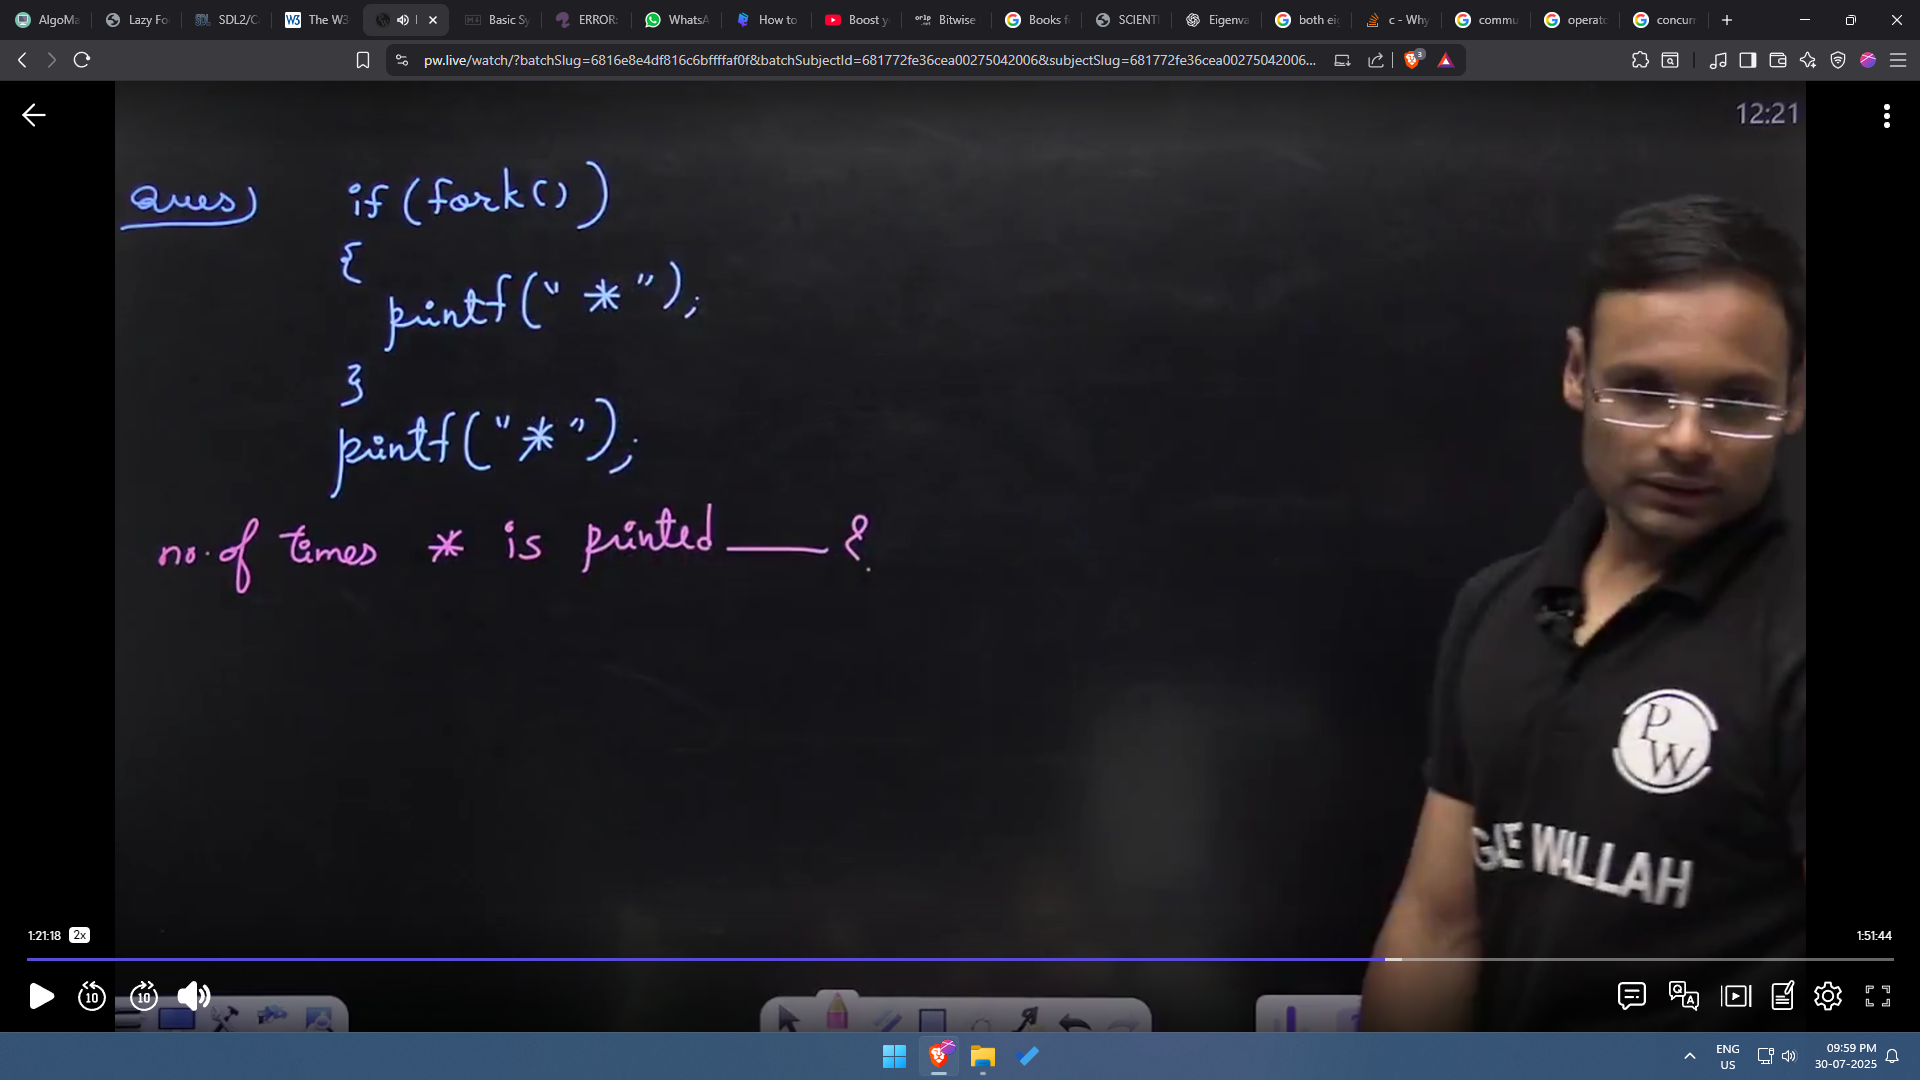 AlgoMa
Lazy Fo
SDL2/C
The W3
Basic Sy
ERROR:
WhatsA
How to
Boost y
Bitwise
Books f
SCIENTI
Eigenva
both eig
c - Why
commu
operato
concurr
pw.live/watch/?batchSlug=6816e8e4df816c6bffffaf0f&batchSubjectId=681772fe36cea00275042006&subjectSlug=681772fe36cea00275042006...
12:21
Ques) if (fork())
{
printf("*");
}
printf("*");
no. of times * is printed ____ ?
PW
GATE WALLAH
1:21:18 2x
1:51:44
10 10
ENG
US
09:59 PM
30-07-2025